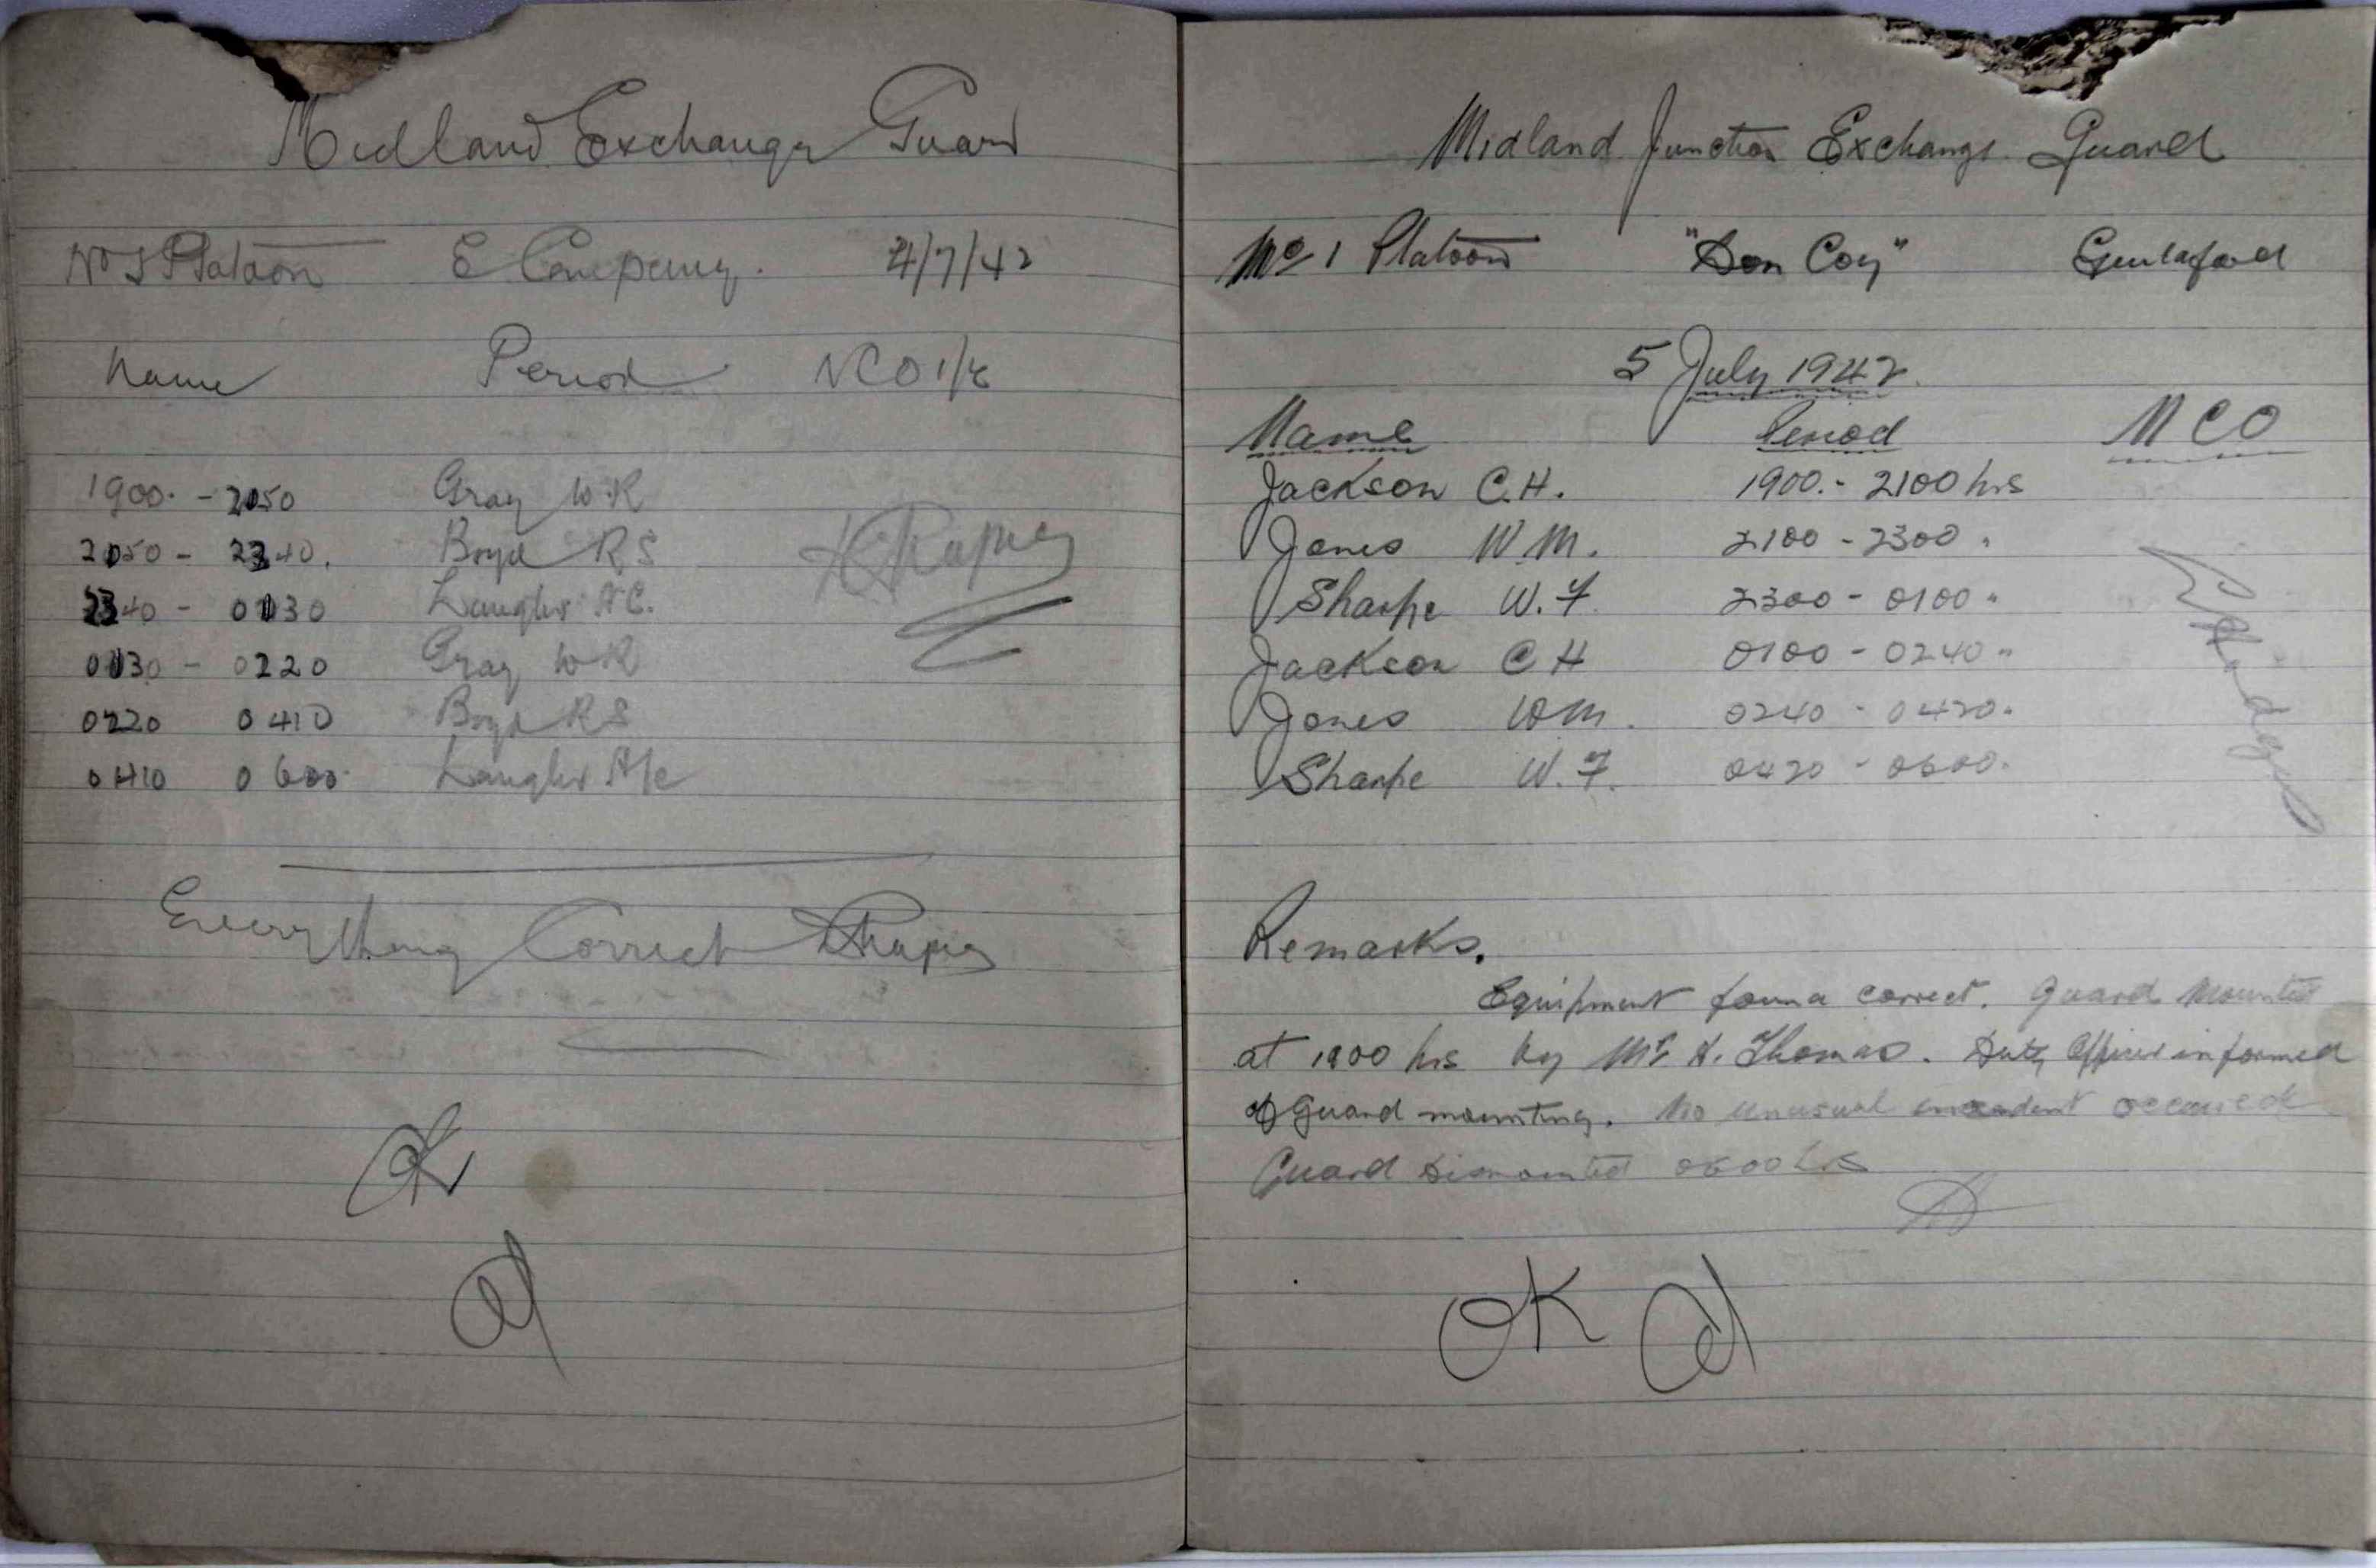 Midland Exchange Guard
No 1 Platoon E Company. 4/7/42
Name Period NCO i/c
1900. - 2050 Gray W.R
2050 - 2240. Boyd R S
2340 - 0030 Langler A C.
0030 - 0220 Gray W R
0220 0410 Boyd R S
0410 0600 Langler A C
Everything Correct
OK
Midland Junction Exchange Guard
No 1 Platoon "Don Coy" Guildford
5 July 1942.
Name Period NCO
Jackson C.H. 1900. - 2100 hrs
Jones W M. 2100 - 2300 "
Sharpe W. F. 2300 - 0100 "
Jackson C H 0100 - 0240 "
Jones W M. 0240 - 0420 "
Sharpe W. F. 0420 - 0600 "
Remarks.
Equipment found correct. Guard Mounted
at 1900 hrs by Mr H. Thomas. Duty Officer informed
of Guard mounting. No unusual incident occurred
Guard Dismounted 0600 hrs
OK